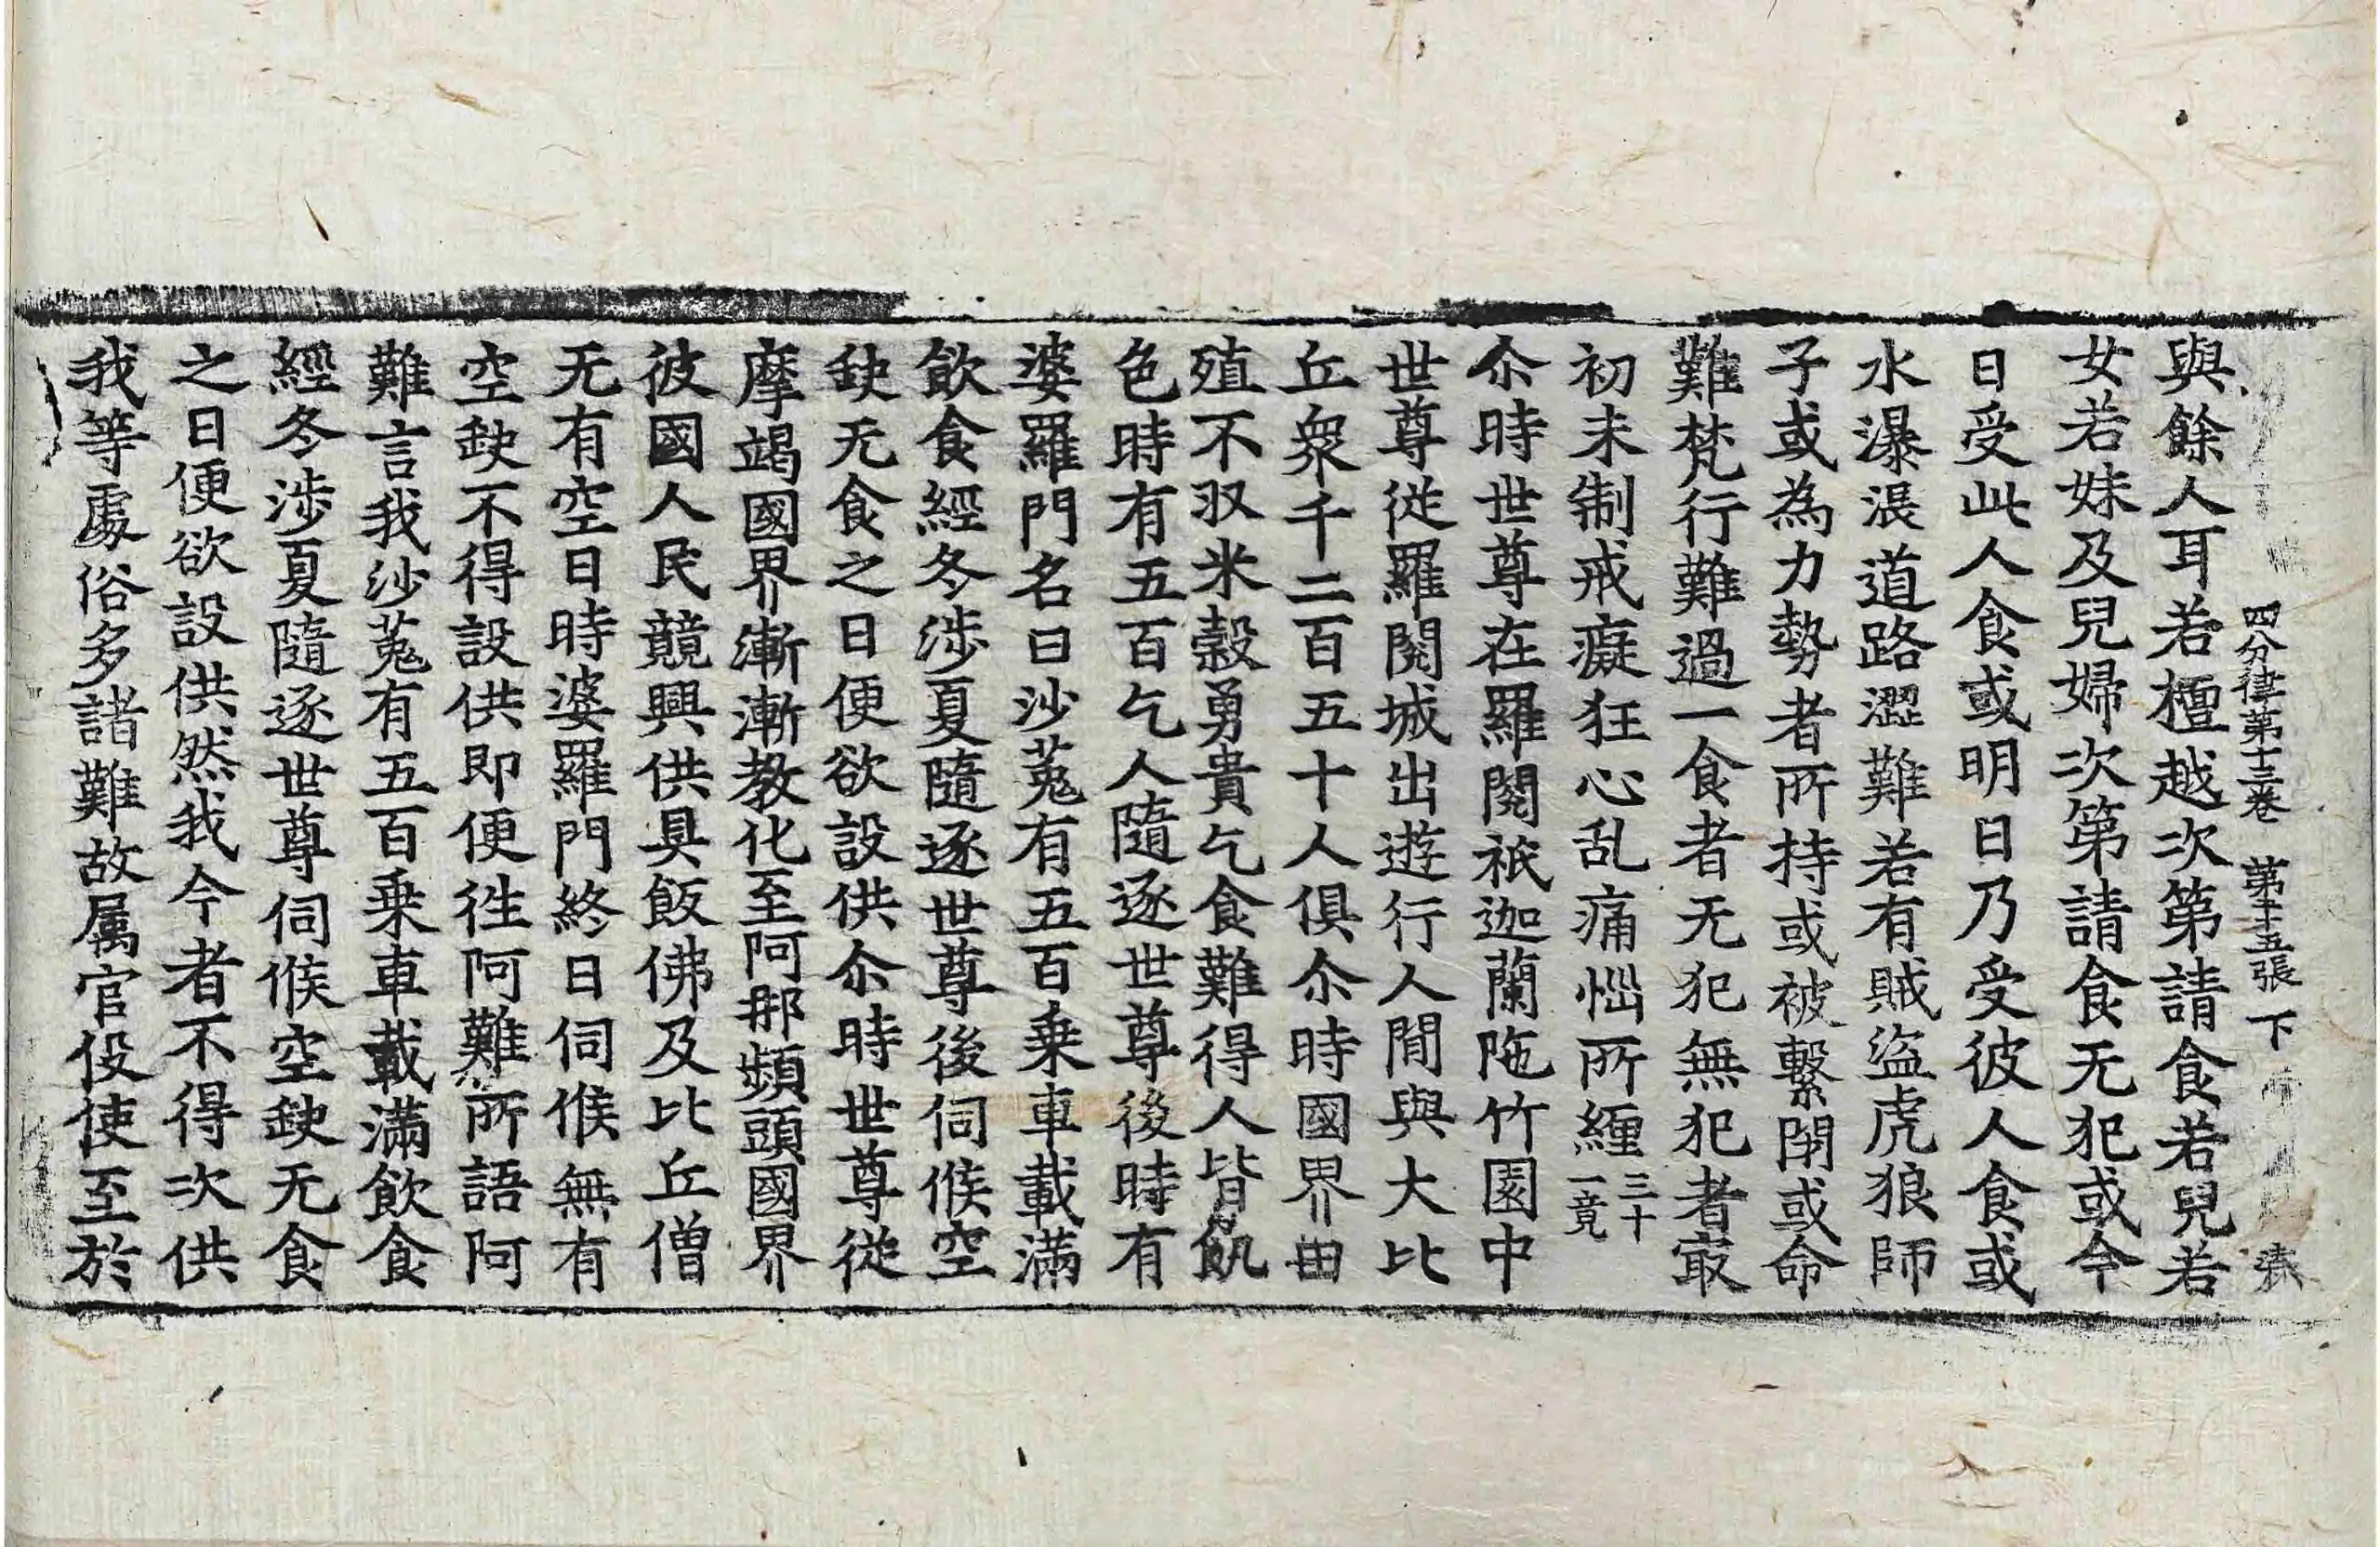 四分律第十三卷 第十五張 下
與餘人耳若檀越次第請食若兒若
女若妹及兒婦次第請食无犯或今
日受此人食或明日乃受彼人食或
水瀑漲道路澀難若有賊盜虎狼師
子或為力勢者所持或被繫閉或命
難梵行難過一食者无犯無犯者㝡
初未制戒癡狂心乱痛惱所纏三十一竟
尒時世尊在羅閱祇迦蘭陁竹園中
世尊從羅閱城出遊行人間與大比
丘衆千二百五十人俱尒時國界田
殖不収米榖勇貴乞食難得人皆飢
色時有五百乞人隨逐世尊後時有
婆羅門名曰沙菟有五百乗車載滿
飲食經冬涉夏隨逐世尊後伺候空
缺无食之日便欲設供尒時世尊從
摩竭國界漸漸教化至阿那頻頭國界
彼國人民競興供具飯佛及比丘僧
无有空日時婆羅門終日伺候無有
空缺不得設供即便徃阿難所語阿
難言我沙菟有五百乗車載滿飲食
經冬涉夏隨逐世尊伺候空缺无食
之日便欲設供然我今者不得次供
我等處俗多諸難故属官伇使至於